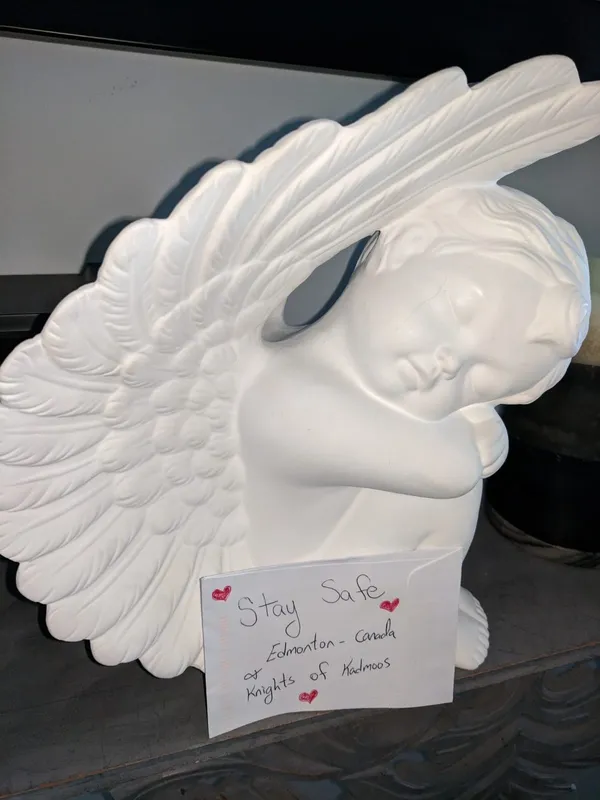 Stay Safe
Edmonton - Canada
Knights of Kadmoos